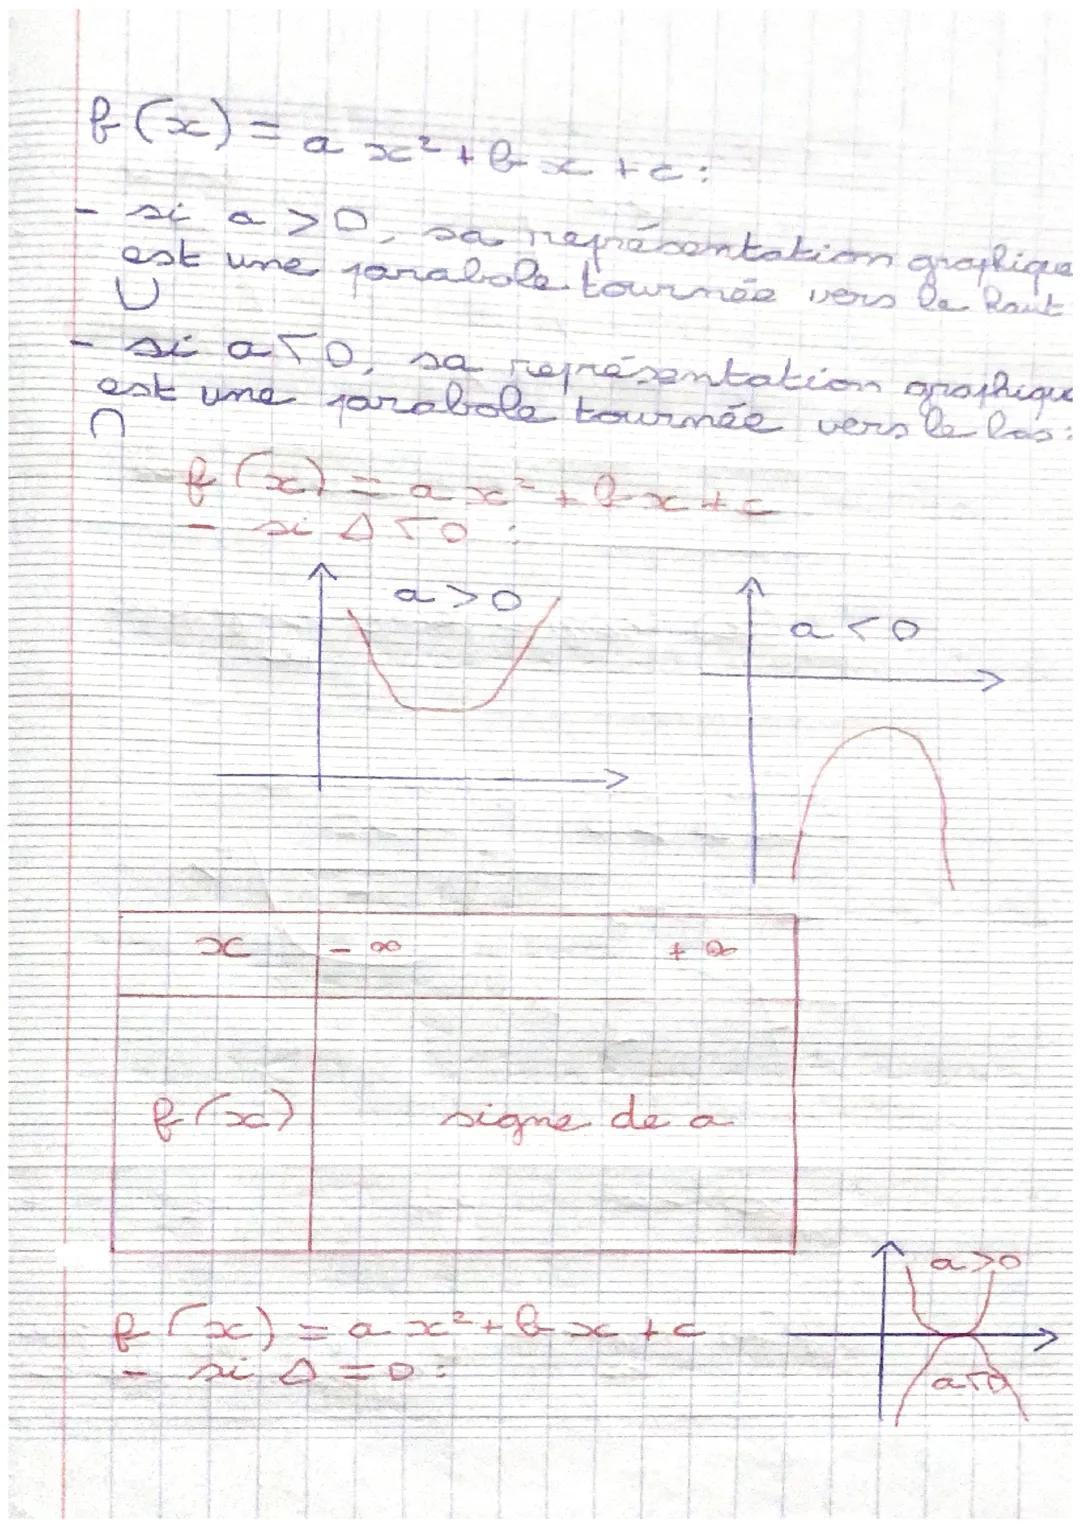 f(x) = ax² + bx + c :
- si a > 0, sa représentation graphique
est une parabole tournée vers le haut
∪
- si a < 0, sa représentation graphique
est une parabole tournée vers le bas :
∩
f(x) = ax² + bx + c
- si Δ < 0 :
a > 0
a < 0
x -∞ +∞
f(x) signe de a
a > 0
f(x) = ax² + bx + c
- si Δ = 0 :
a < 0